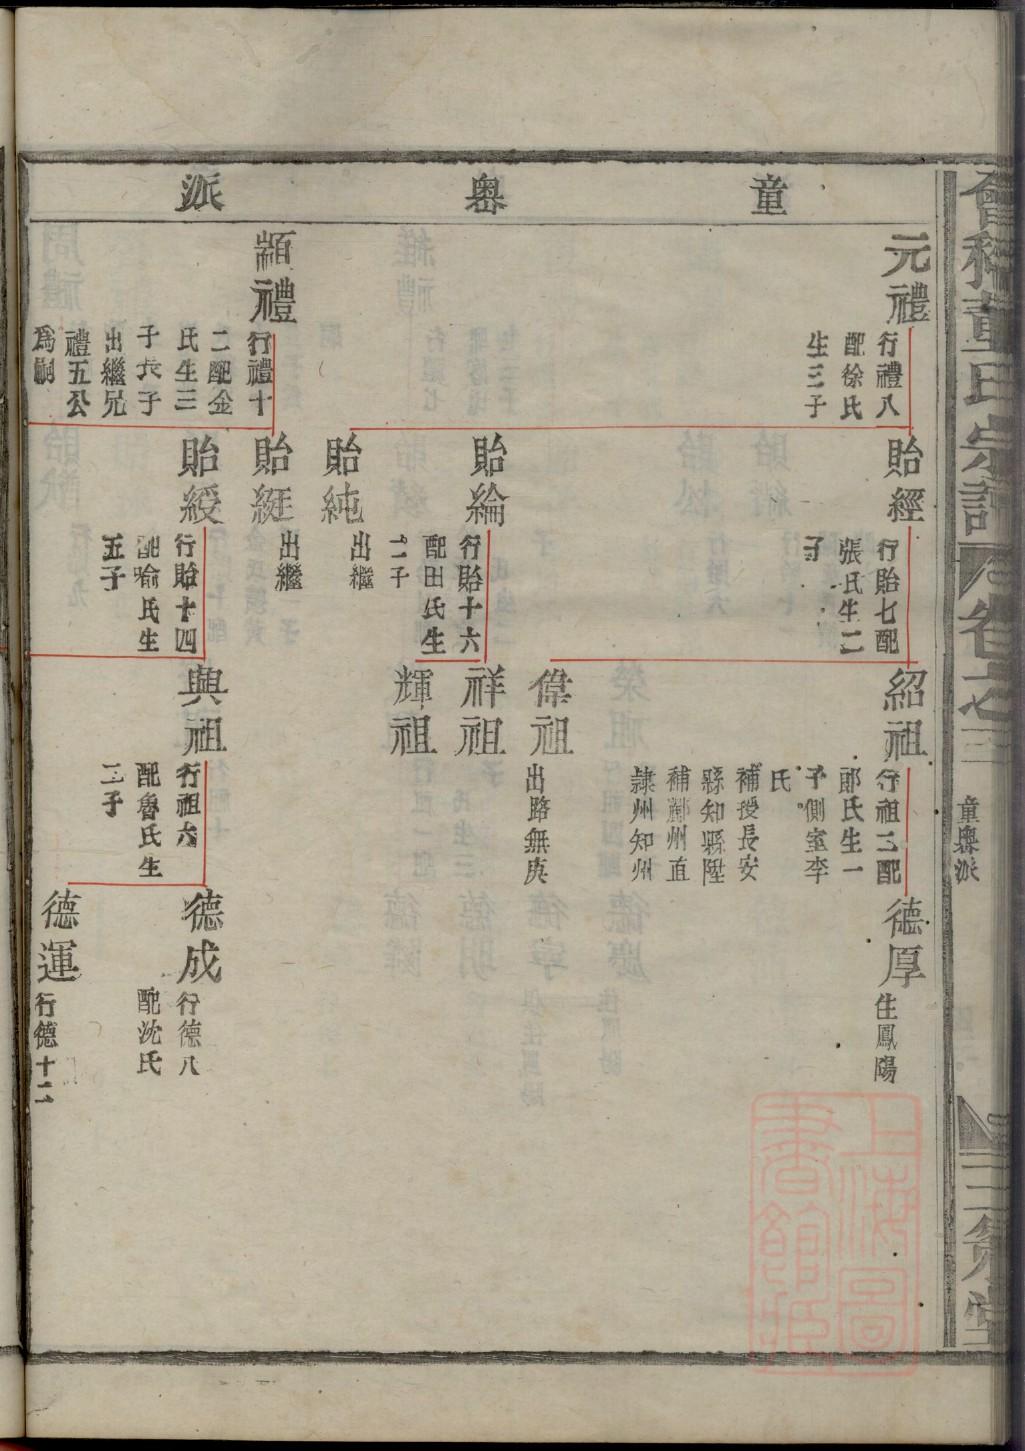 童墺派
元禮
行禮八
配徐氏
生三子
顓禮
行禮十
二配金
氏生三
子長子
出繼兄
禮五公
爲嗣
貽經
行貽七配
張氏生二
子
貽綸
行貽十六
配田氏生
二子
貽純
出繼
貽綎
出繼
貽綬
行貽十四
配喻氏生
五子
紹祖
行祖三配
郎氏生一
子側室李
氏
補授長安
縣知縣陞
補鄜州直
隸州知州
偉祖
出路無庚
祥祖
輝祖
興祖
行祖六
配魯氏生
二子
德厚
住鳳陽
德成
行德八
配沈氏
德運
行德十二
會稽董氏宗譜
童墺派
三策堂
上海圖
書館藏